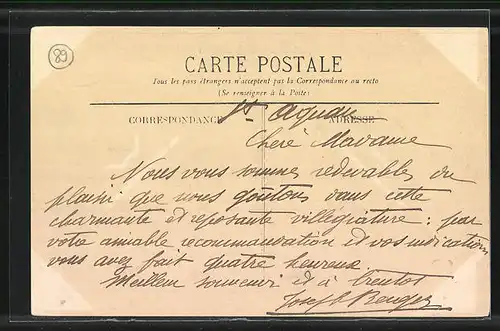 89
CARTE POSTALE
Tous les pays étrangers n'acceptent pas la Correspondance au recto
(Se renseigner à la Poste)
CORRESPONDANCE
ADRESSE
Chere Madame
Nous vous sommes redevables du
plaisir que nous goûtons dans cette
charmante et reposante villégiature : par
votre aimable recommandation et vos indications
vous avez fait quatre heureux.
Meilleur souvenir et à bientôt
Joseph